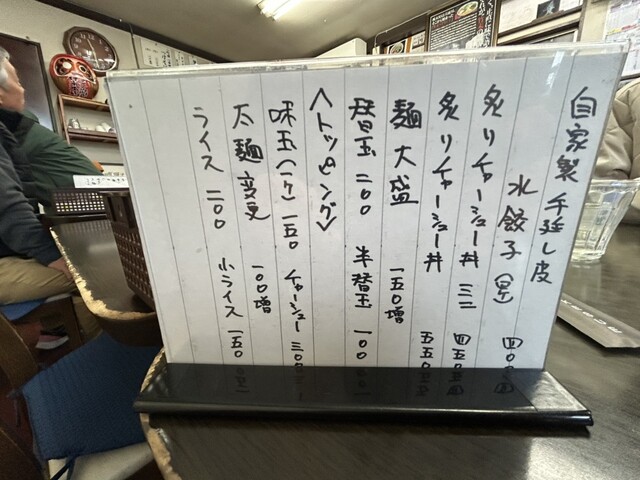 自家製 手延し皮
水餃子(三ケ) 四〇〇
炙りチャーシュー丼 ミニ 四五〇
炙りチャーシュー丼 五五〇
麺大盛 一五〇増
替玉 二〇〇 半替玉 一〇〇
〈トッピング〉
味玉(一ケ) 一五〇 チャーシュー 三〇〇
太麺変更 一〇〇増
ライス 二〇〇 小ライス 一五〇